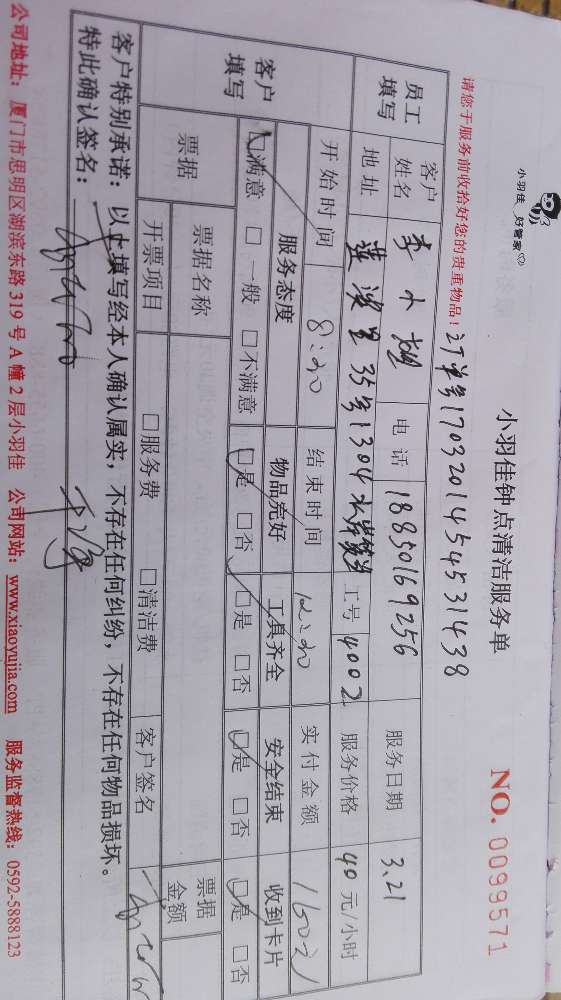 小羽佳 好管家
小羽佳钟点清洁服务单
NO. 0099571
请您于服务前收拾好您的贵重物品! 订单号1703201454531438
员工填写 客户姓名 李小 电话 18850169256 服务日期 3.21
地址 莲滨里35号1304 工号 4002 服务价格 40元/小时
客户填写 开始时间 8:30 结束时间 12:30 实付金额 160元
服务态度 物品完好 工具齐全 安全结束 收到卡片
☑满意 □一般 □不满意 ☑是 □否 ☑是 □否 ☑是 □否 ☑是 □否
票据 票据名称 票据金额
开票项目 □服务费 □清洁费 客户签名
客户特别承诺:以上填写经本人确认属实,不存在任何纠纷,不存在任何物品损坏。
特此确认签名:
公司地址:厦门市思明区湖滨东路319号A幢2层小羽佳 公司网站:www.xiaoyujia.com 服务监督热线:0592-5888123